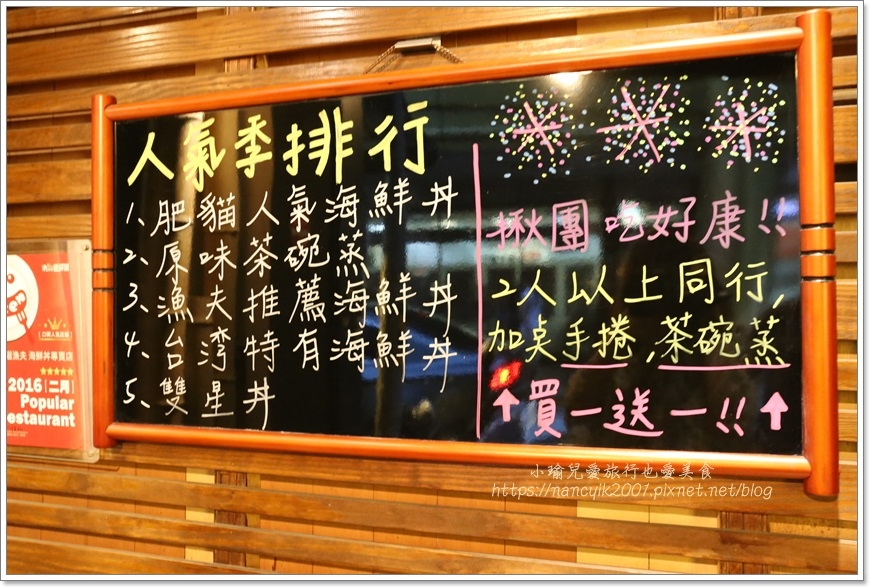 人氣季排行
1、肥貓人氣海鮮丼
2、原味茶碗蒸
3、漁夫推薦海鮮丼
4、台灣特有海鮮丼
5、雙星丼
揪團吃好康!!
2人以上同行,
加点手捲,茶碗蒸
↑買一送一!!↑
漁夫 海鮮丼專賣店
★★★★★
2016[二月]
Popular
estaurant
小瑜兒愛旅行也愛美食
https://nancylk2001.pixnet.net/blog